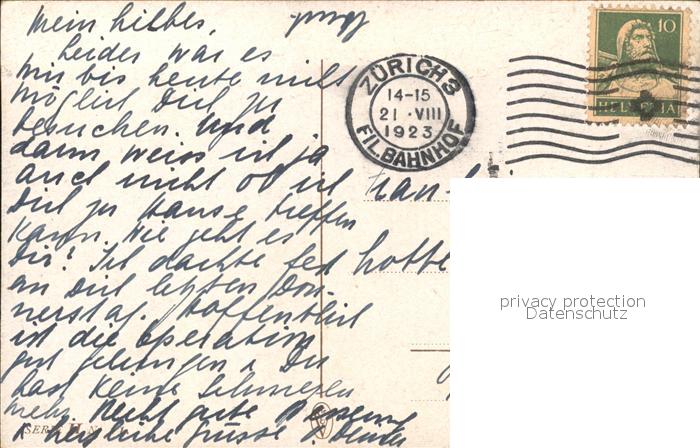 Mein liebes,
Leider war es
mir bis heute nicht
möglich Dich zu
besuchen. Und
dann weiss ich ja
auch nicht ob ich
Dich zu Hause treffen
kann. Wie geht es
Dir? Ich dachte fest
an Dich letzten Don-
nerstag. Hoffentlich
ist die Operation
gut gelungen & Du
hast keine Schmerzen
mehr. Recht gute
& herzliche Grüsse
ZÜRICH 3
14-15
21 · VIII
1923
FIL. BAHNHOF
10
HELVETIA
privacy protection
Datenschutz
SERIE